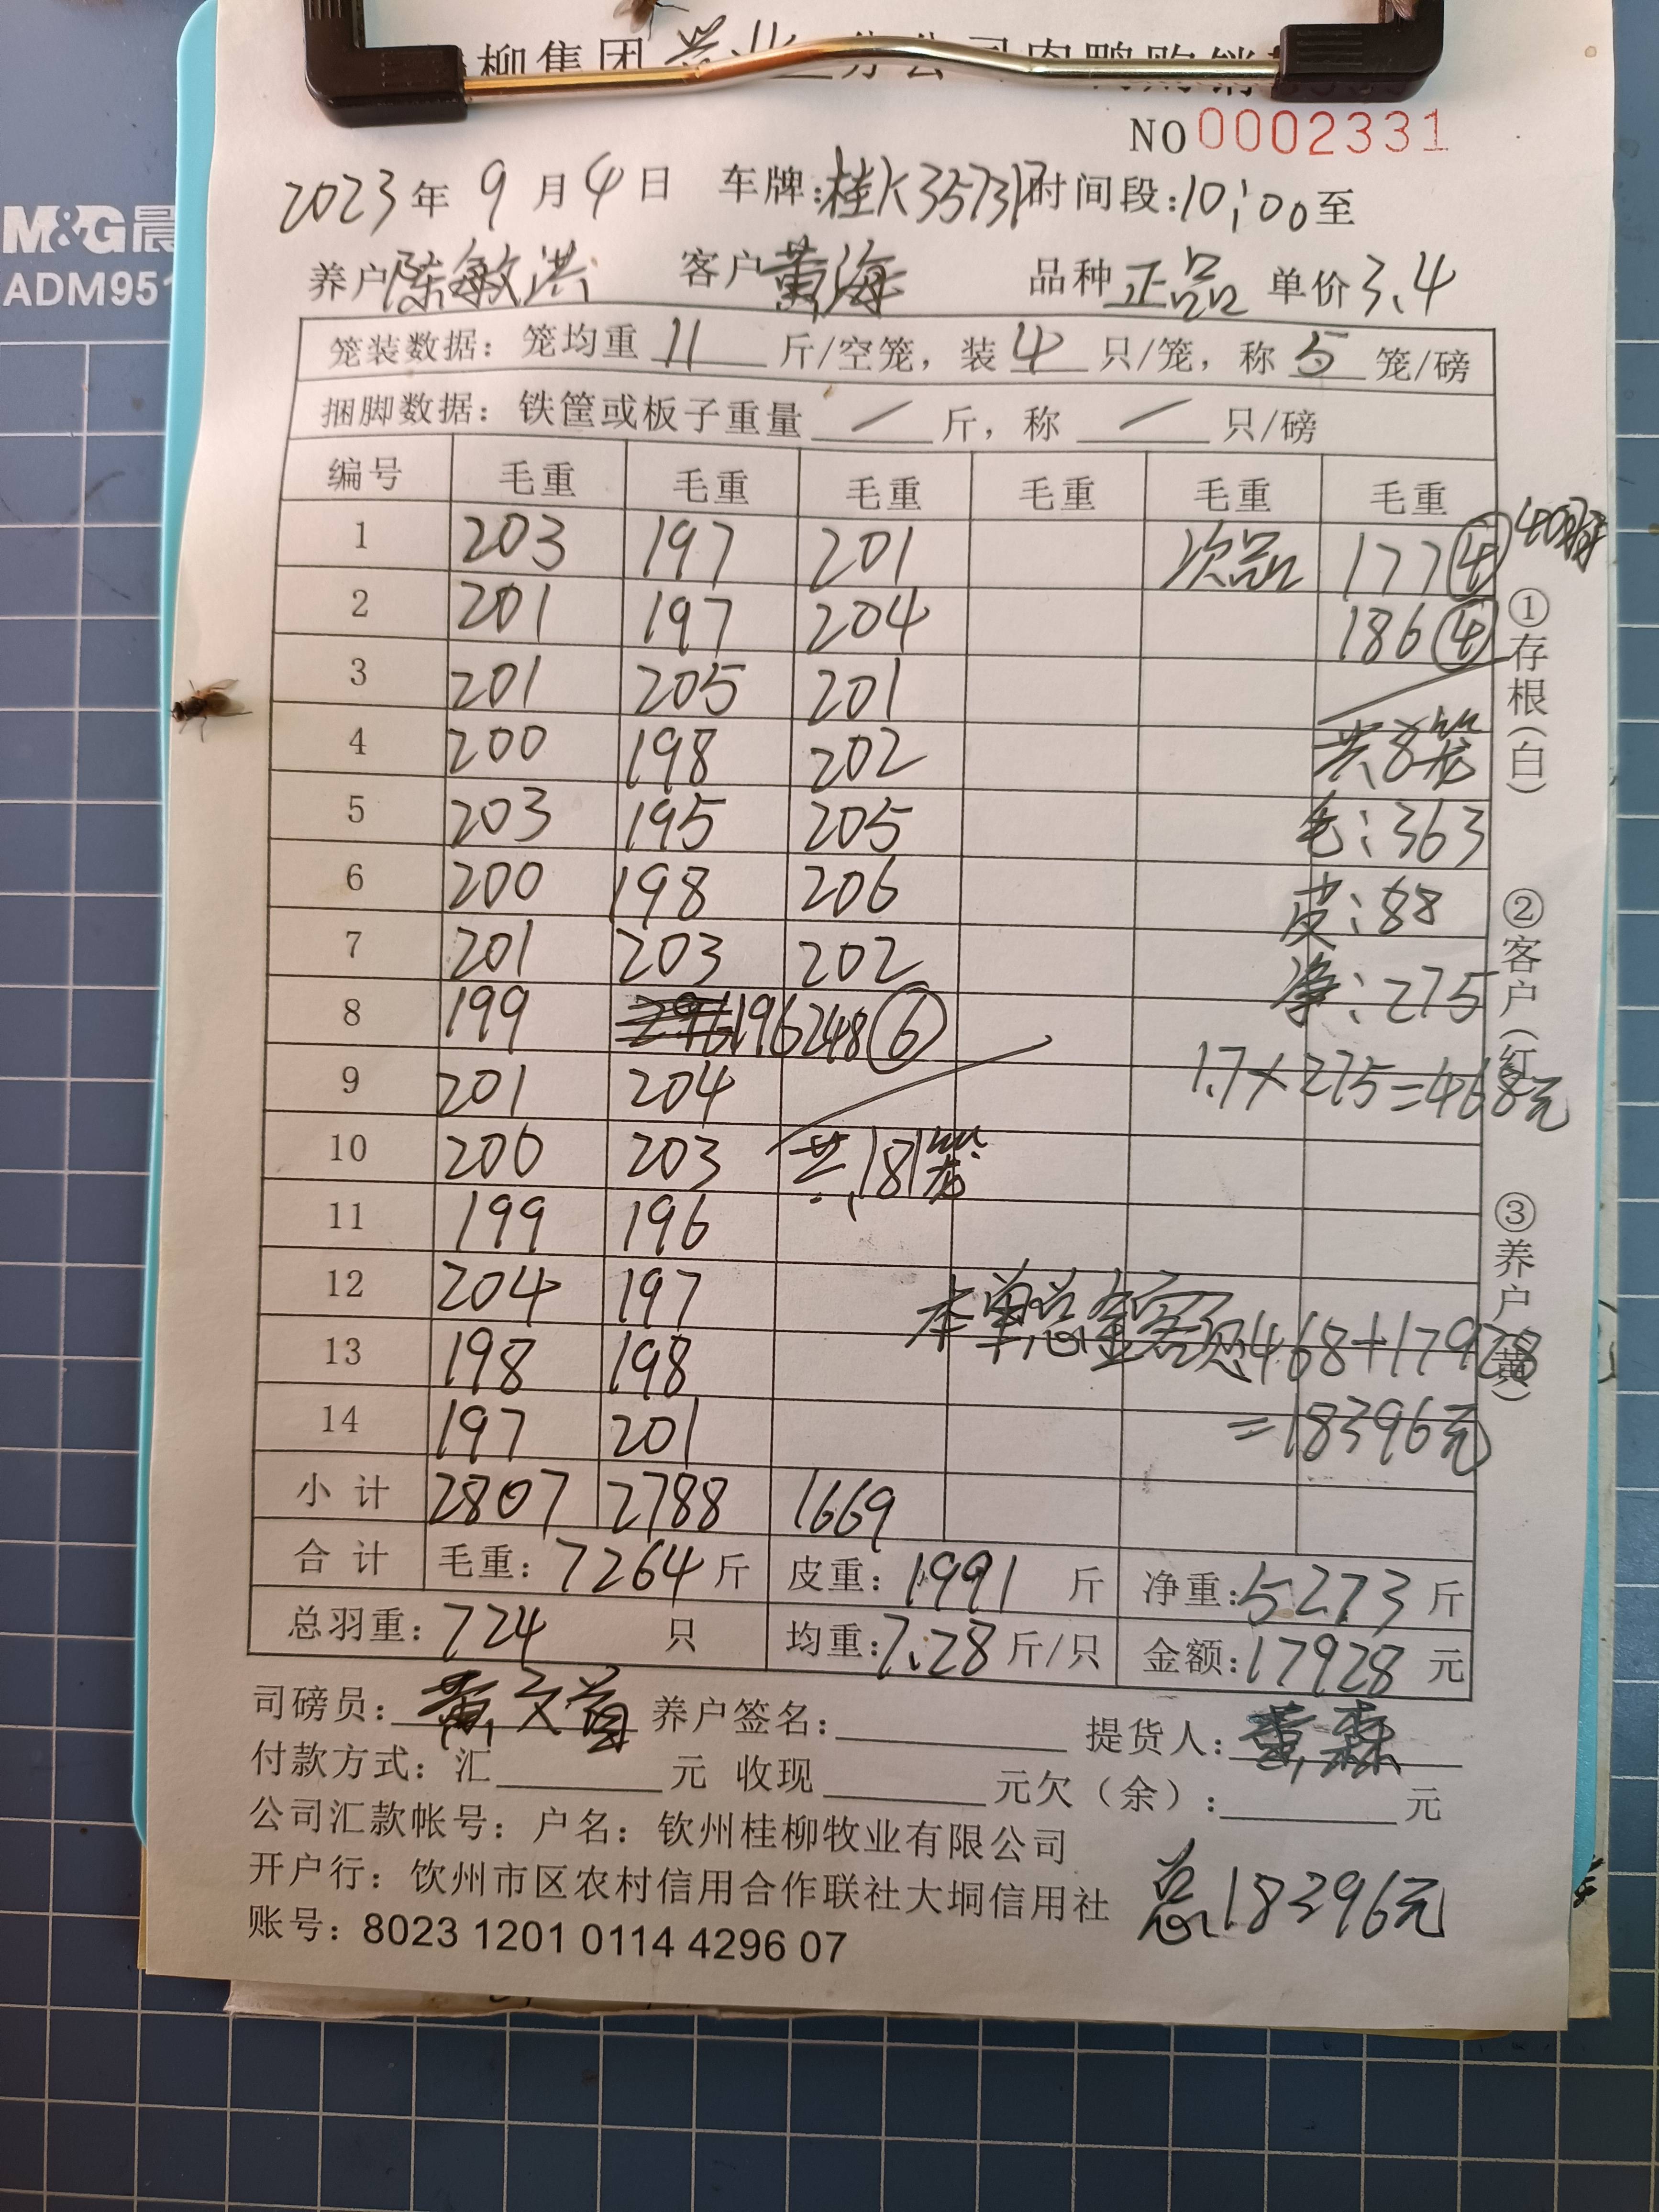 柳集团兴业
NO 0002331
2023年9月4日 车牌:桂K35731 时间段:10:00至
M&G晨
ADM951
养户陈敏洪 客户黄海 品种正品 单价3.4
笼装数据：笼均重 11 斤/空笼，装 4 只/笼，称 5 笼/磅
捆脚数据：铁筐或板子重量 / 斤，称 / 只/磅
编号 毛重 毛重 毛重 毛重 毛重 毛重
1 203 197 201 次品 177④
2 201 197 204 186④
3 201 205 201
4 200 198 202 共8笼
5 203 195 205 毛:363
6 200 198 206 皮:88
7 201 203 202 净:275
8 199 196 248⑥
9 201 204 1.7×275=468元
10 200 203 共181笼
11 199 196
12 204 197
13 198 198 本单总金额468+17928
14 197 201 =18396元
小计 2807 2788 1669
合计 毛重：7264斤 皮重：1991 斤 净重:5273斤
总羽重：724 只 均重:7.28斤/只 金额:17928 元
①存根（白）
②客户（红）
③养户（黄）
司磅员： 养户签名： 提货人：黄森
付款方式：汇 元 收现 元欠（余）： 元
公司汇款帐号：户名：钦州桂柳牧业有限公司
开户行：钦州市区农村信用合作联社大垌信用社
总18396元
账号：8023 1201 0114 4296 07